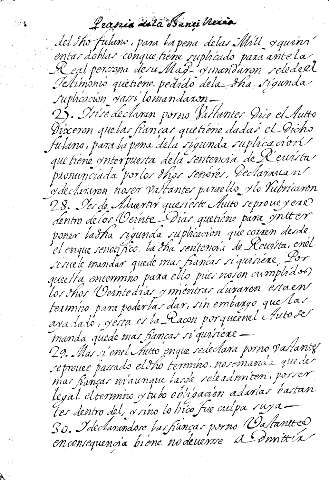 Practica de la Chancilleria
del dho fulano, para la pena delas Mill y quini
entas doblas con que tiene suplicado para ante la
Real persona de su Mag. y mandaron se le de el
testimonio que tiene pedido de la dha segunda
suplicacion y asi lo mandaron
Y si se declaran por no Vastantes Dise el Autto
Dixeron que las fianças que tiene dadas el Dicho
fulano, para la pena de la segunda suplicacion
que tiene ynterpuesta de la sentencia de Revista
pronunciada por los dhos señores, declaravan
y declararon no ser vastantes para ello, y lo Rubricaron
28. Es de Advertir que si este Auto se proveyere
dentro de los Veinte Dias que tiene para ynter
poner la dha segunda suplicacion que corren desde
el en que se notifico la dha sentencia de Revista, en el
se suele mandar que de mas fianças si quisiere Por
que esta en termino para ello pues no son cumplidos
los dhos Veinte dias y mientras duraren esta en
termino para poderlas dar, sin embargo que las
aya dado, y esta es la Raçon por que en el Auto se
manda que de mas fianças si quisiere
29. Mas si en el Autto en que se declara por no vastantes
se provee pasado el dho termino, no se manda que de
mas fianças ni aunque las de se le admiten, por ser
legal el termino y tubo obligacion a darlas bastan
tes dentro del, y si no lo hiço fue culpa suya
30. Y declarandose las fianças por no Vastanttes
en consequencia biene no deverse Admittir